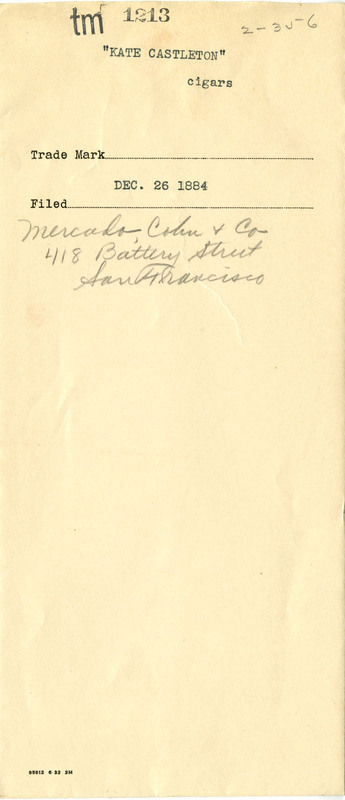 tm 1213 2-35-6
"KATE CASTLETON"
cigars
Trade Mark
DEC. 26 1884
Filed
Mercado, Cohn & Co
418 Battery Street
San Francisco